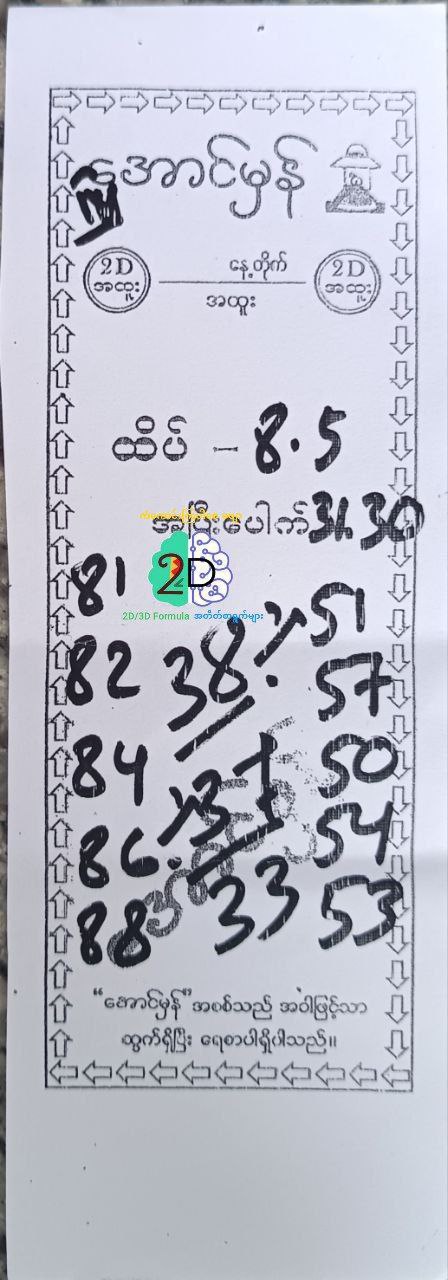 အောင်မှန်
2D အထူး
နေ့တိုက်
အထူး
2D အထူး
ထိပ် - 8.5
အပြီးပေါက် 30
2D
2D/3D Formula အတိတ်စာရွက်များ
81
51
82
38
57
84
50
86
54
88
33
53
"အောင်မှန်" အစစ်သည် အဝါဖြင့်သာ
ထွက်ရှိပြီး ရေစာပါရှိပါသည်။